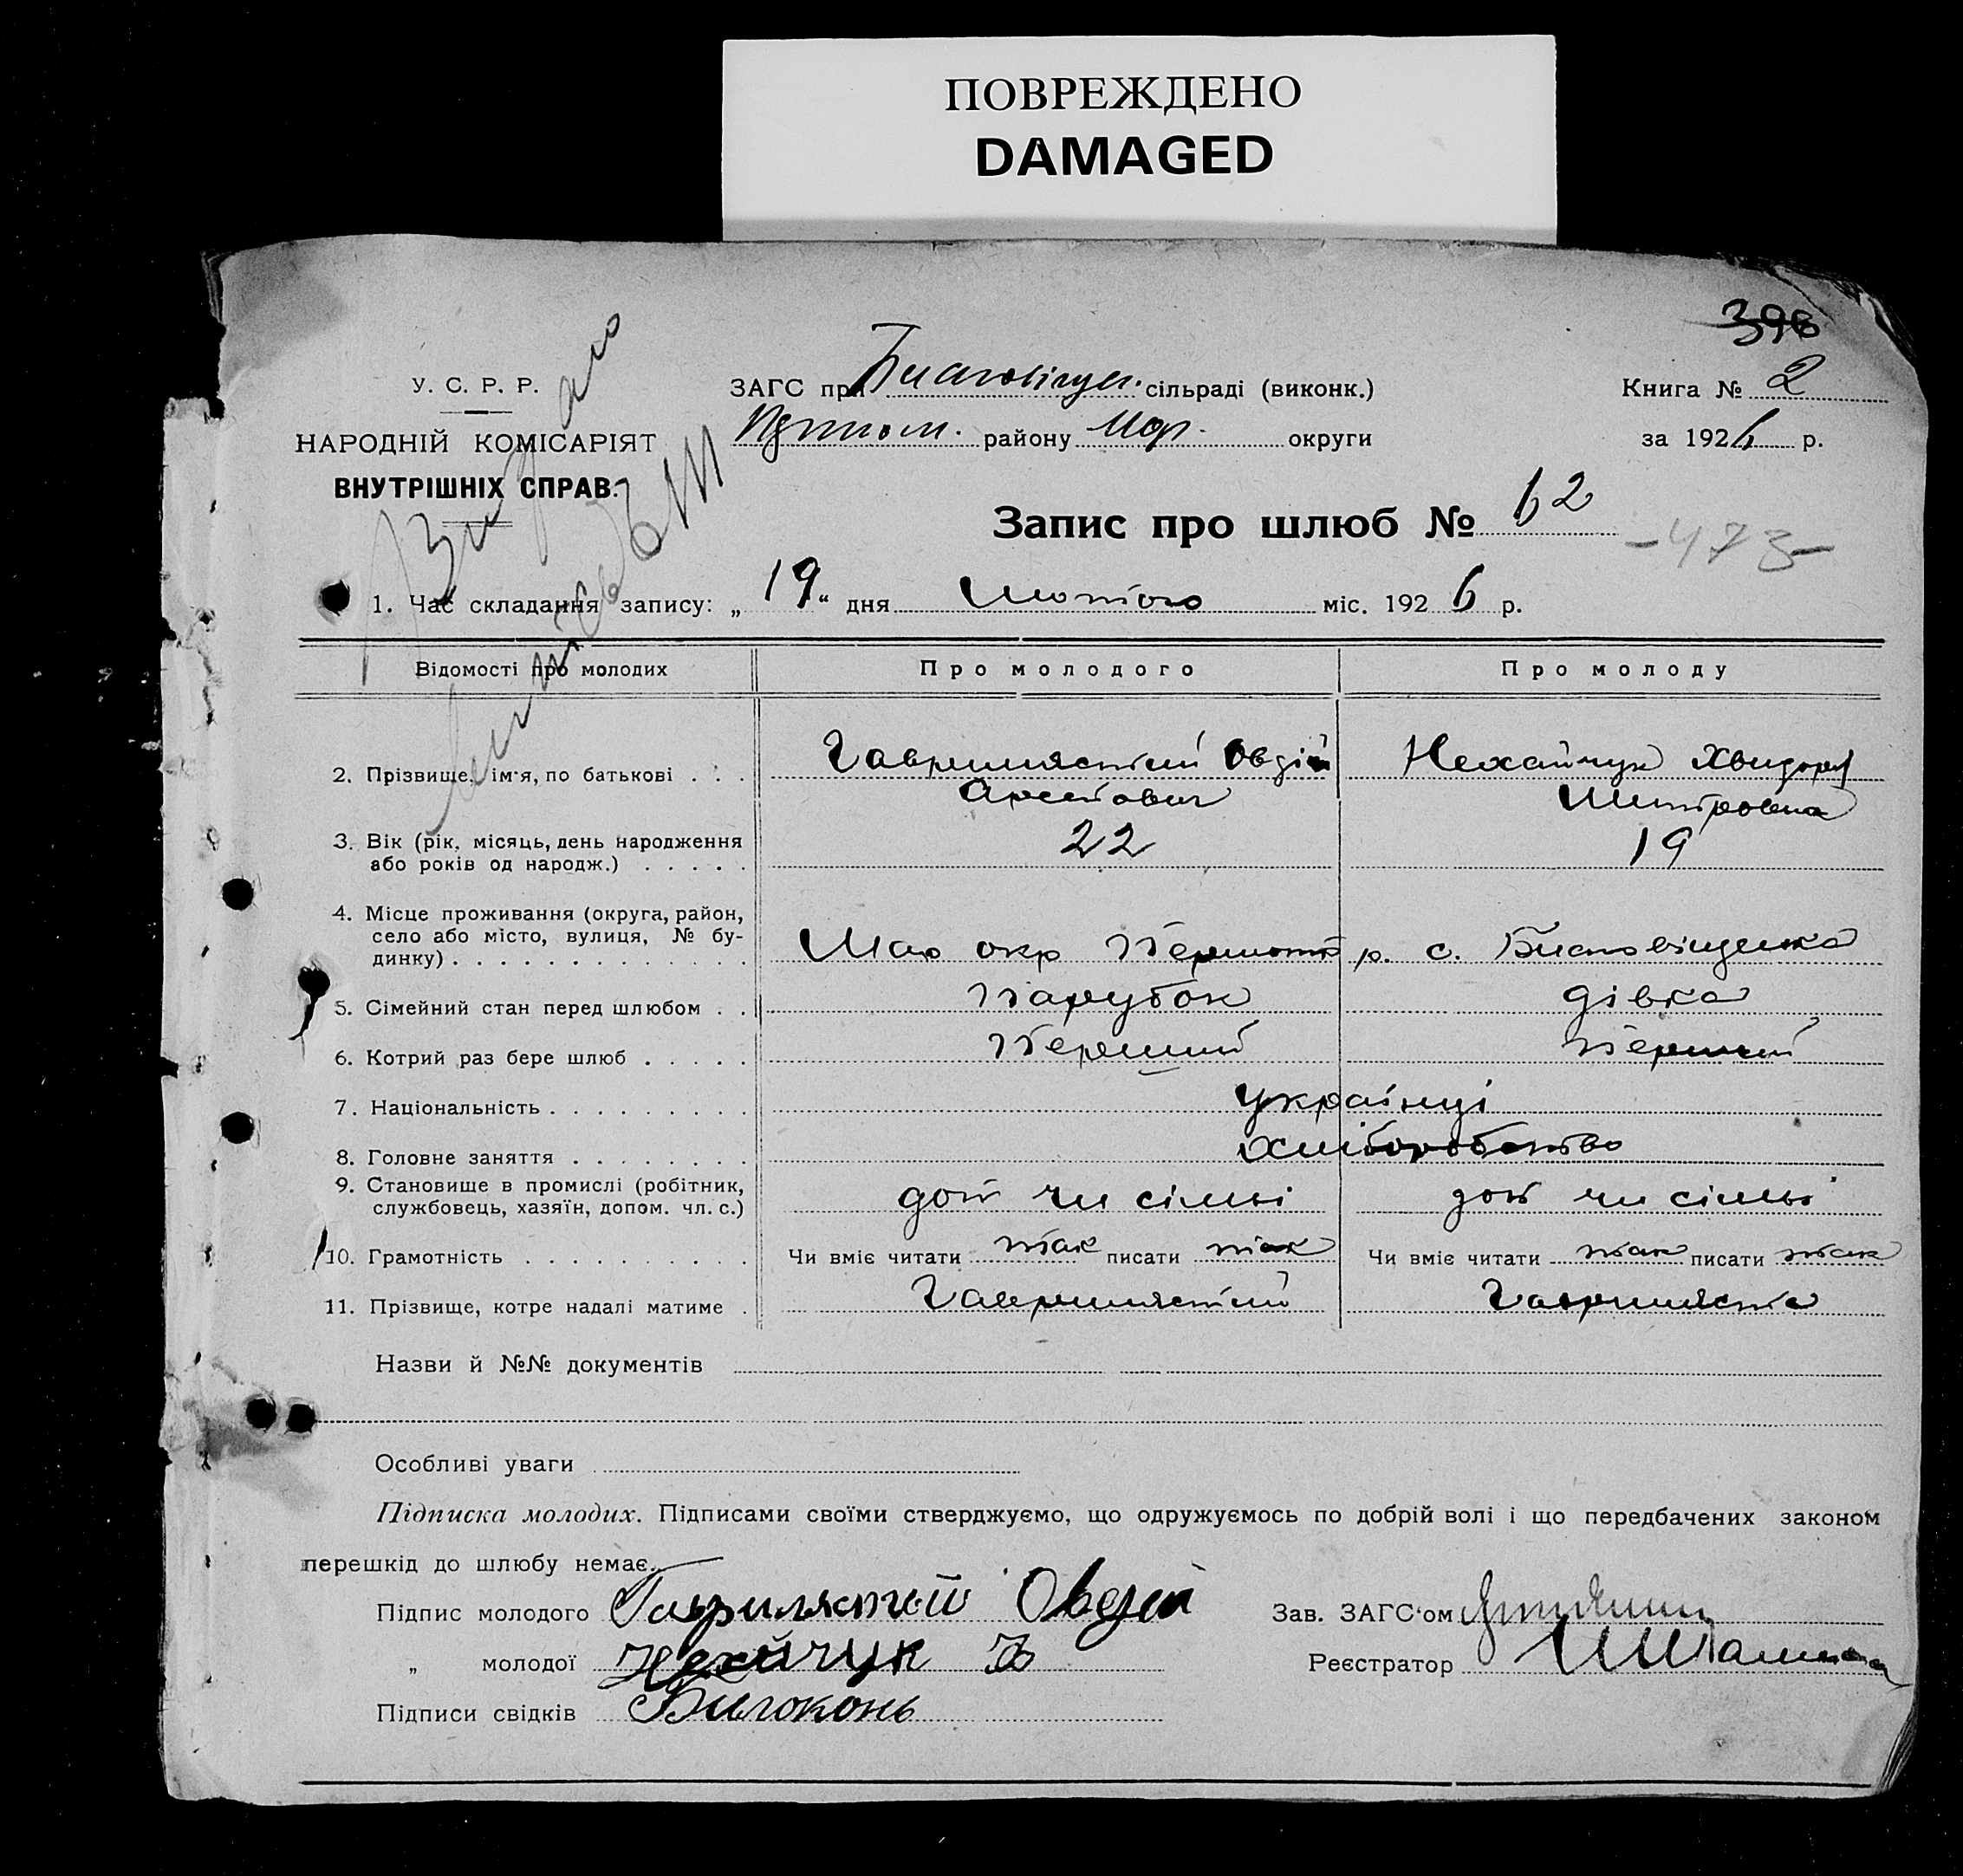 ПОВРЕЖДЕНО
DAMAGED
396
У. С. Р. Р.
НАРОДНІЙ КОМІСАРІЯТ
ВНУТРІШНІХ СПРАВ.
ЗАГС при сільраді (виконк.)
району округи
Книга № 2
за 1926 р.
Запис про шлюб № 62
-473-
1. Час складання запису: „ 19 “ дня Лютого міс. 1926 р.
Відомості про молодих Про молодого Про молоду
2. Прізвище, ім'я, по батькові . . . Гаврилястий Овдій Нехайчук Хвидора
Митровна
3. Вік (рік, місяць, день народження
або років од народж.) . . . . . 22 19
4. Місце проживання (округа, район,
село або місто, вулиця, № бу-
динку) . . . . . . . . . . . . . окр р. с.
5. Сімейний стан перед шлюбом . . Парубок дівка
6. Котрий раз бере шлюб . . . . . Перший Перший
7. Національність . . . . . . . . . українці
8. Головне заняття . . . . . . . . хліборобство
9. Становище в промислі (робітник,
службовець, хазяїн, допом. чл. с.) доп чл сімьі доп чл сімьі
10. Грамотність . . . . . . . . . . Чи вміє читати так писати так Чи вміє читати так писати так
11. Прізвище, котре надалі матиме . Гаврилястий Гавриляста
Назви й №№ документів
Особливі уваги
Підписка молодих. Підписами своїми стверджуємо, що одружуємось по добрій волі і що передбачених законом
перешкід до шлюбу немає.
Підпис молодого Гаврилястий Овдей Зав. ЗАГС'ом
„ молодої Нехайчук Х Реєстратор
Підписи свідків Билоконь